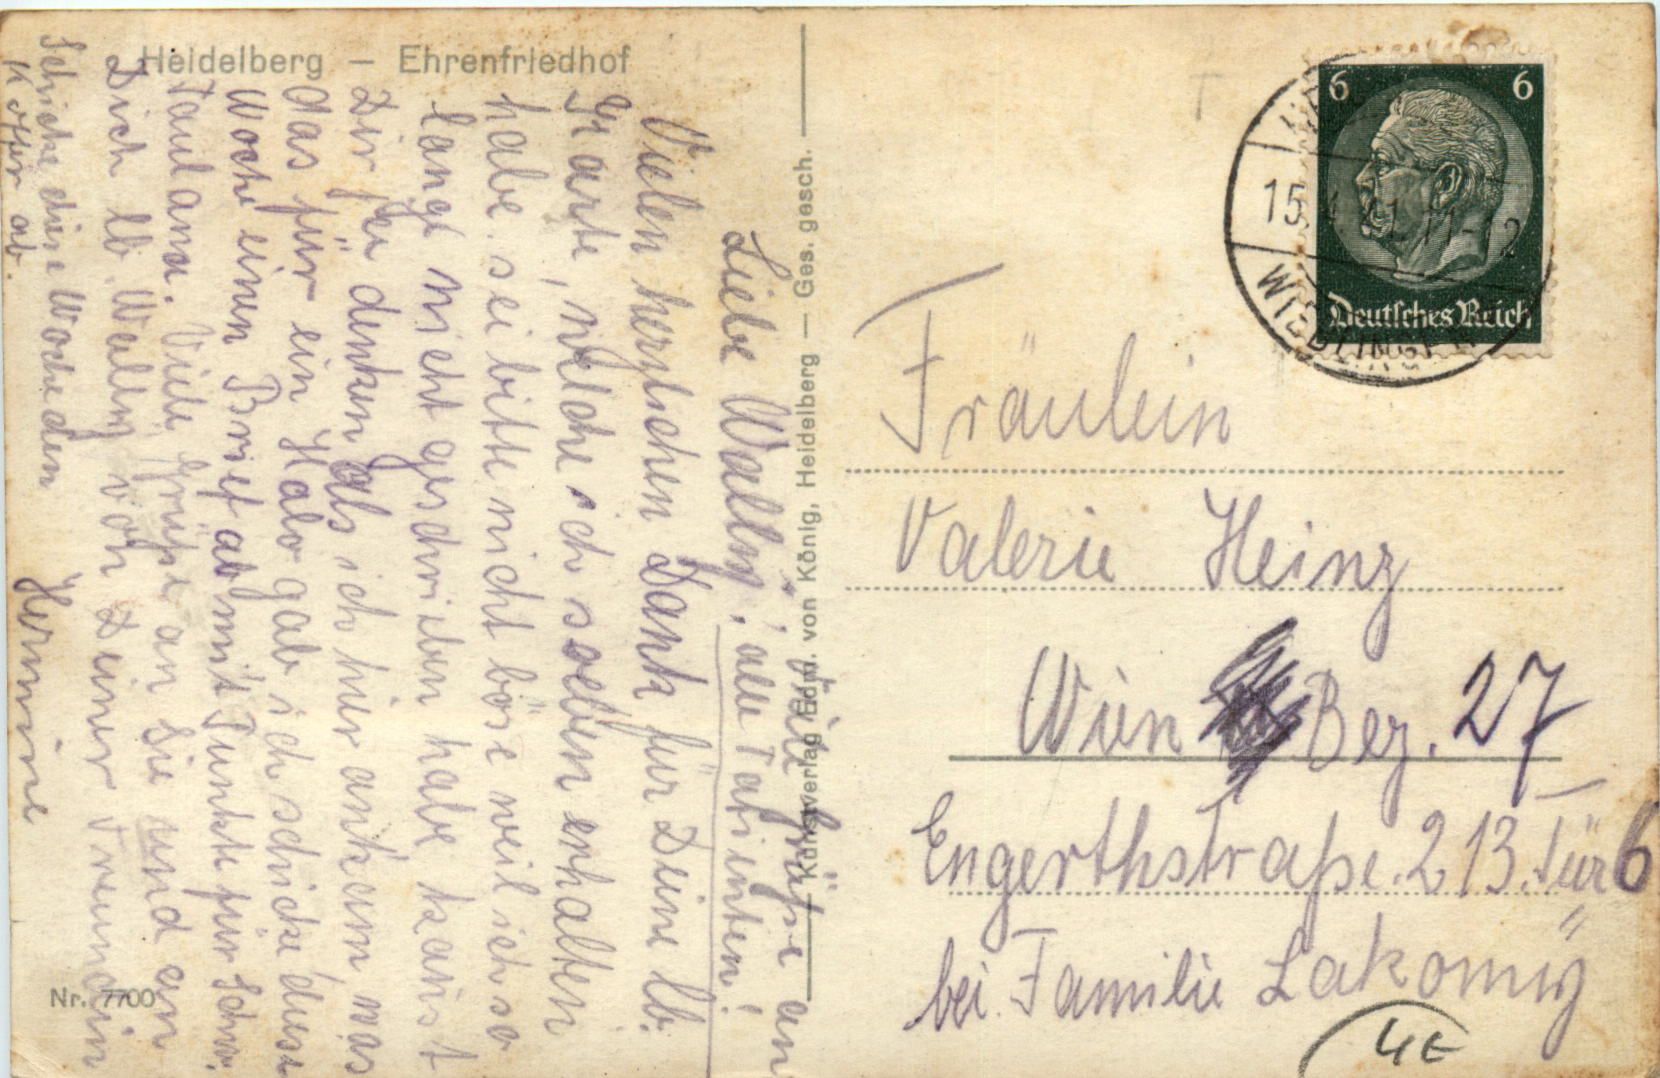 Heidelberg – Ehrenfriedhof
Liebe Wally!
Vielen herzlichen Dank für Deine lb.
Karte, welche ich soeben erhalten
habe. sei bitte nicht böse weil ich so
lange nicht geschrieben habe kanst
Dir ja denken als ich hier ankam, was
das für ein Halo gab ich schicke diese
Woche einen Brief ab mit Punkte für
Viele Grüße an Sie und an
Dich lb Wally von Deiner Freundin
Hermine
Schicke diese Woche den
Koffer ab.
Viele Grüße an
alle Patienten!
Nr. 7700
Kunstverlag Edm. von König, Heidelberg — Ges. gesch.
6 6
Deutsches Reich
15
41 11-12
WIEBLINGEN
Fräulein
Valerie Heinz
Wien Bez. 27
Engerthstraße. 213. Tür 6
bei Familie Lakomy
4E